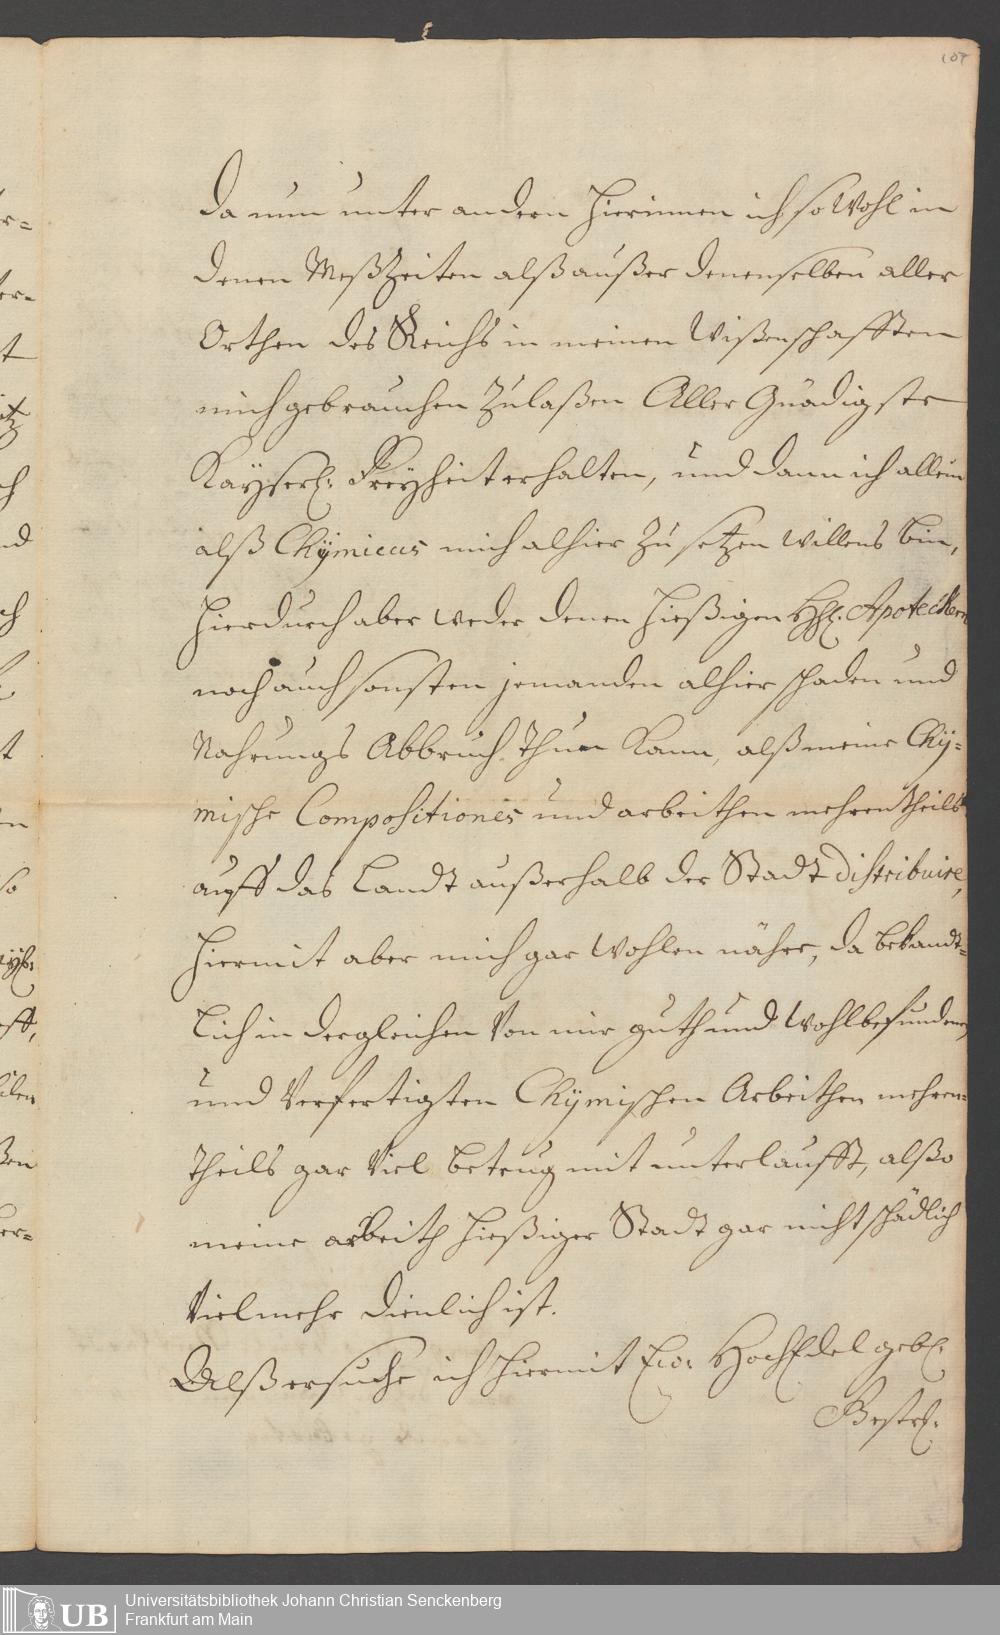 107
Da nun unter andern hierinnen ich so wohl in
denen Meßzeiten alß außer denenselben aller
Orthen des Reichs in meinen Wißenschafften
mich gebrauchen zulaßen Aller Gnädigste
Kayserl: Freyheit erhalten, und dann ich allein
alß Chÿmicus mich alhier zu setzen willens bin,
hierdurch aber weder denen hießigen HhL. Apoteckern
noch auch sonsten jemanden alhier schaden und
Nahrungs Abbruch thun kann, alß meine Chÿ=
mische Compositiones und arbeithen mehrentheils
auff das Landt außerhalb der Stadt distribuire,
hiermit aber mich gar wohlen nähre, da bekandt=
lich in dergleichen von mir guth und wohlbefundenen
und verfertigten Chÿmischen Arbeithen mehren=
theils gar viel betrug mit unterlaufft, alßo
meine arbeith hießiger Stadt gar nicht schädlich
vielmehr dienlich ist.
Alß ersuche ich hiermit Ew: HochEdel gebl:
Gestrl:
UB
Universitätsbibliothek Johann Christian Senckenberg
Frankfurt am Main